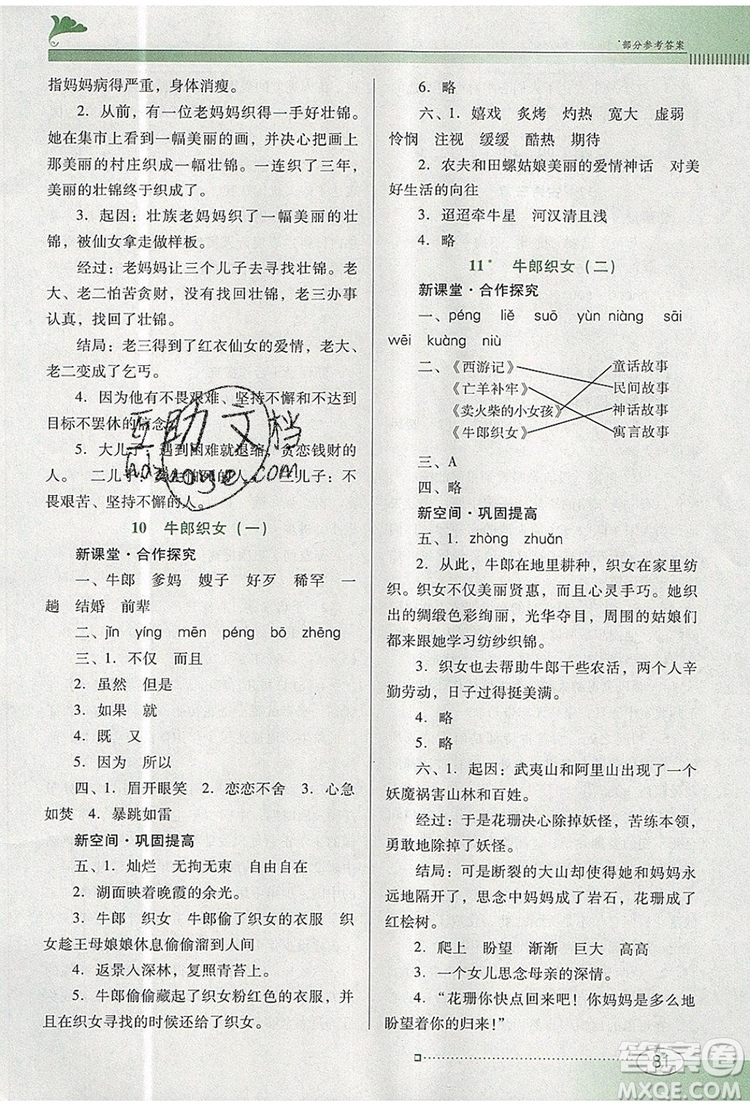 部分参考答案
指妈妈病得严重，身体消瘦。
2. 从前，有一位老妈妈织得一手好壮锦。
她在集市上看到一幅美丽的画，并决心要把
那美丽的村庄织成壮锦。一连织了三年，
美丽的壮锦终于织成了。
3. 起因：壮族老妈妈织了一幅美丽的壮
锦，被仙女拿走做样板。
经过：老妈妈让三个儿子去寻壮锦。老
大、老二怕苦贪财，只有老三办事
认真，找回了壮锦。
结局：老三得到了红衣仙女的爱情，老大、
老二变成了乞丐。
4. 因为他有不畏艰难、坚持不懈和不达到
目标不罢休的信念。
5. 大儿子：遇到困难就退缩、贪恋钱财的
人。 二儿子：
畏艰苦、坚持不懈的人。
10 牛郎织女（一）
新课堂·合作探究
一、牛郎 爹妈 嫂子 好歹 稀罕 一
趟 结婚 前辈
二、jǐn yíng mēn péng bō zhēng
三、1. 不仅 而且
2. 虽然 但是
3. 如果 就
4. 既 又
5. 因为 所以
四、1. 眉开眼笑 2. 恋恋不舍 3. 心急
如焚 4. 暴跳如雷
新空间·巩固提高
五、1. 灿烂 无拘无束 自由自在
2. 湖面映着晚霞的余光。
3. 牛郎 织女 牛郎偷了织女的衣服 织
女趁王母娘娘休息偷偷溜到人间
4. 返景入深林，复照青苔上。
5. 牛郎偷偷藏起了织女粉红色的衣服，并
且在织女寻找的时候还给了织女。
6. 略
六、1. 嬉戏 炙烤 灼热 宽大 虚弱
怜悯 注视 缓缓 酷热 期待
2. 农夫和田螺姑娘美丽的爱情神话 对美
好生活的向往
3. 迢迢牵牛星 河汉清且浅
4. 略
11* 牛郎织女（二）
新课堂·合作探究
一、péng liě suō yùn niàng sāi
wēi kuāng niù
二、《西游记》 童话故事
《亡羊补牢》 民间故事
《卖火柴的小女孩》 神话故事
《牛郎织女》 寓言故事
三、A
四、略
新空间·巩固提高
五、1. zhòng zhuǎn
2. 从此，牛郎在地里耕种，织女在家里纺
织。织女不仅美丽贤惠，而且心灵手巧。她织
出的绸缎色彩绚丽，光华夺目，周围的姑娘们
都来跟她学习纺纱织锦。
3. 织女也去帮助牛郎干些农活，两个人辛
勤劳动，日子过得挺美满。
4. 略
5. 略
六、1. 起因：武夷山和阿里山出现了一个
妖魔祸害山林和百姓。
经过：于是花珊决心除掉妖怪，苦练本领，
勇敢地除掉了妖怪。
结局：可是断裂的大山却使得她和妈妈永
远地隔开了，思念中妈妈成了岩石，花珊成了
红桧树。
2. 爬上 盼望 渐渐 巨大 高高
3. 一个女儿思念母亲的深情。
4. “花珊你快点回来吧！你妈妈多么地
盼望着你的归来！”
81
互助文档
答案圈
MXQE.COM